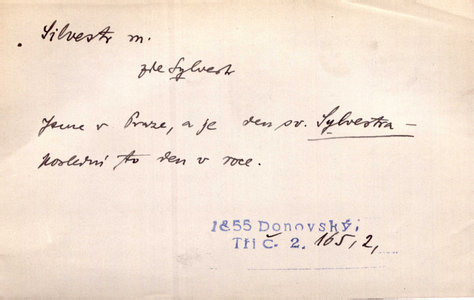 Silvestr m.
zde Sylvestr
Jsme v Praze, a je den sv. Sylvestra –
poslední to den v roce.
1855 Donovský:
Tři č. 2. 165, 2,